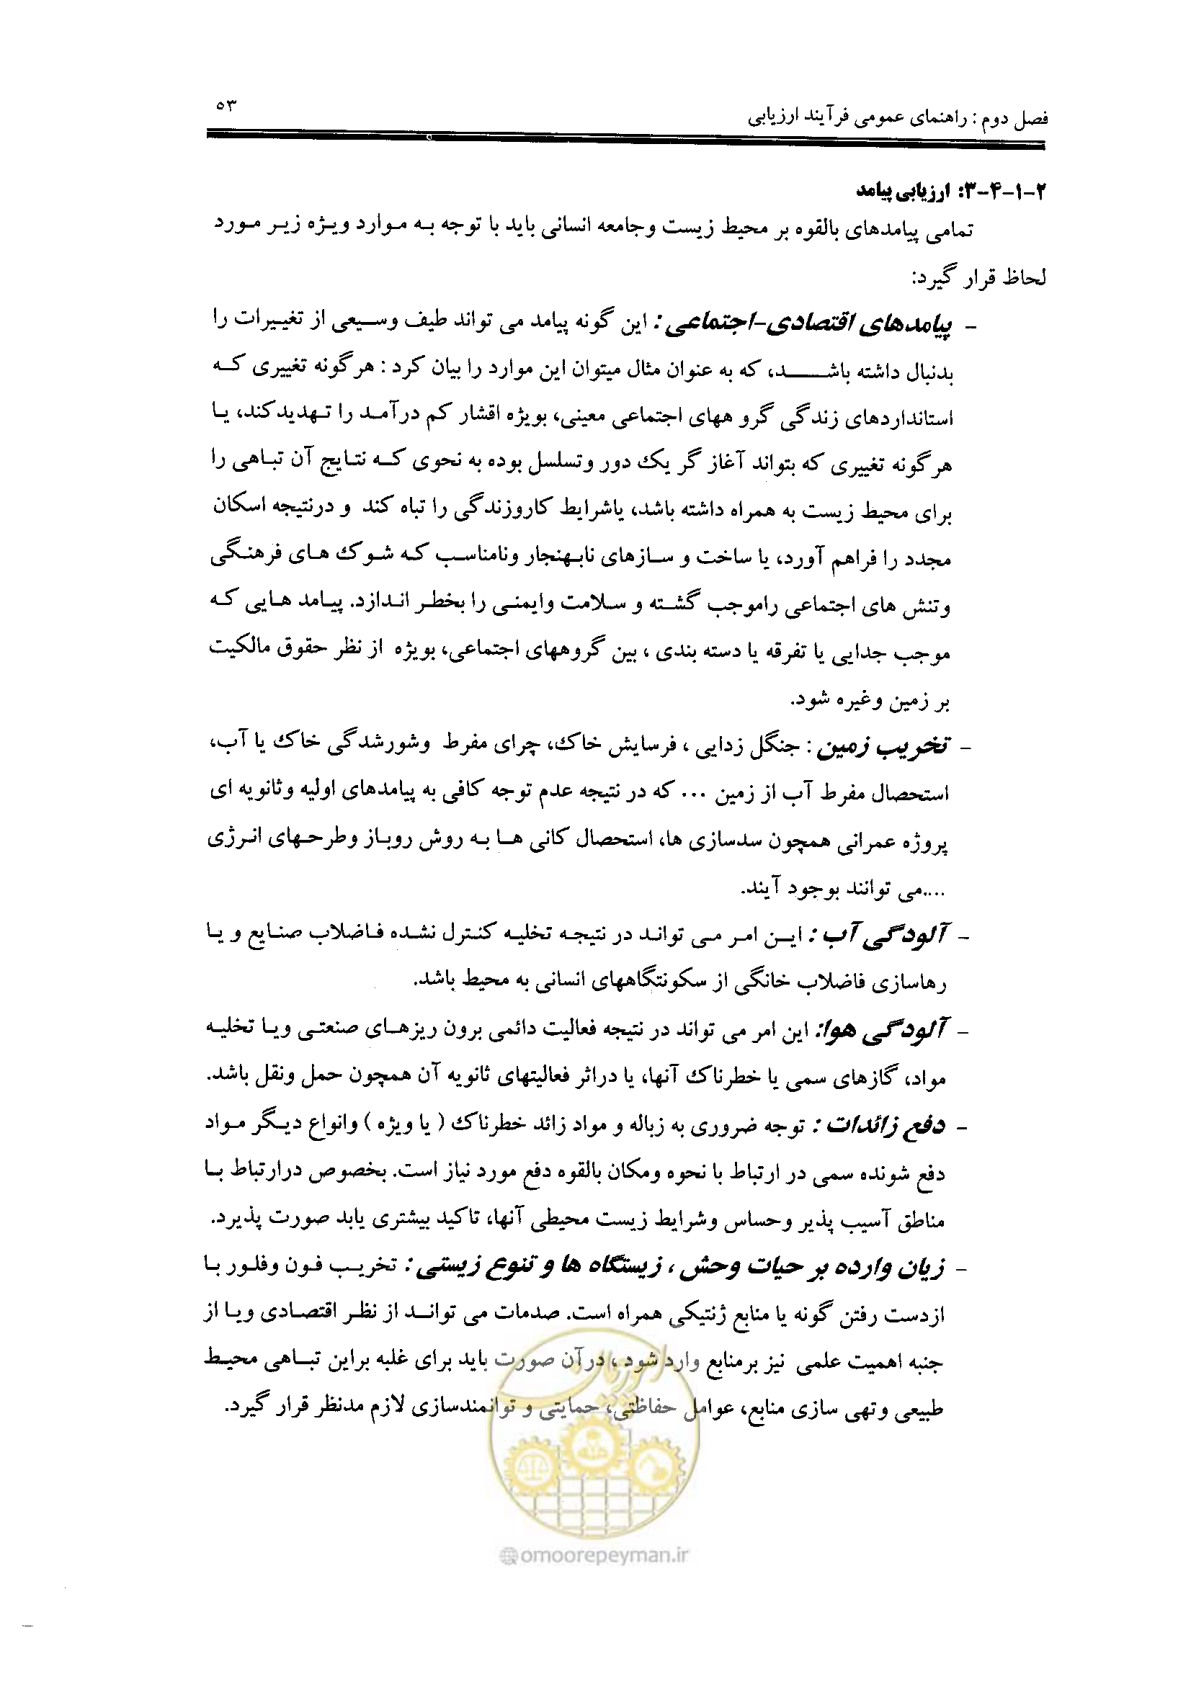 فصل دوم : راهنمای عمومی فرآیند ارزیابی
۵۳
۲-۱-۴-۳: ارزیابی پیامد
تمامی پیامدهای بالقوه بر محیط زیست وجامعه انسانی باید با توجه به موارد ویژه زیر مورد
لحاظ قرار گیرد:
- پیامدهای اقتصادی-اجتماعی : این گونه پیامد می تواند طیف وسیعی از تغییرات را
بدنبال داشته باشد، که به عنوان مثال میتوان این موارد را بیان کرد : هرگونه تغییری که
استانداردهای زندگی گرو ههای اجتماعی معینی، بویژه اقشار کم درآمد را تهدیدکند، یا
هرگونه تغییری که بتواند آغاز گر یک دور وتسلسل بوده به نحوی که نتایج آن تباهی را
برای محیط زیست به همراه داشته باشد، یاشرایط کاروزندگی را تباه کند و درنتیجه اسکان
مجدد را فراهم آورد، یا ساخت و سازهای نابهنجار ونامناسب که شوک های فرهنگی
وتنش های اجتماعی راموجب گشته و سلامت وایمنی را بخطر اندازد. پیامد هایی که
موجب جدایی یا تفرقه یا دسته بندی ، بین گروههای اجتماعی، بویژه از نظر حقوق مالکیت
بر زمین وغیره شود.
- تخریب زمین : جنگل زدایی ، فرسایش خاک، چرای مفرط وشورشدگی خاک یا آب،
استحصال مفرط آب از زمین ... که در نتیجه عدم توجه کافی به پیامدهای اولیه وثانویه ای
پروژه عمرانی همچون سدسازی ها، استحصال کانی ها به روش روباز وطرحهای انرژی
....می توانند بوجود آیند.
- آلودگی آب : این امر می تواند در نتیجه تخلیه کنترل نشده فاضلاب صنایع و یا
رهاسازی فاضلاب خانگی از سکونتگاههای انسانی به محیط باشد.
- آلودگی هوا: این امر می تواند در نتیجه فعالیت دائمی برون ریزهای صنعتی ویا تخلیه
مواد، گازهای سمی یا خطرناک آنها، یا دراثر فعالیتهای ثانویه آن همچون حمل ونقل باشد.
- دفع زائدات : توجه ضروری به زباله و مواد زائد خطرناک ( یا ویژه ) وانواع دیگر مواد
دفع شونده سمی در ارتباط با نحوه ومکان بالقوه دفع مورد نیاز است. بخصوص درارتباط با
مناطق آسیب پذیر وحساس وشرایط زیست محیطی آنها، تاکید بیشتری یابد صورت پذیرد.
- زیان وارده بر حیات وحش ، زیستگاه ها و تنوع زیستی : تخریب فون وفلور با
ازدست رفتن گونه یا منابع ژنتیکی همراه است. صدمات می تواند از نظر اقتصادی ویا از
جنبه اهمیت علمی نیز برمنابع وارد شود ، درآن صورت باید برای غلبه براین تباهی محیط
طبیعی وتهی سازی منابع، عوامل حفاظتی، حمایتی و توانمندسازی لازم مدنظر قرار گیرد.
امور پیمان
@omoorepeyman.ir